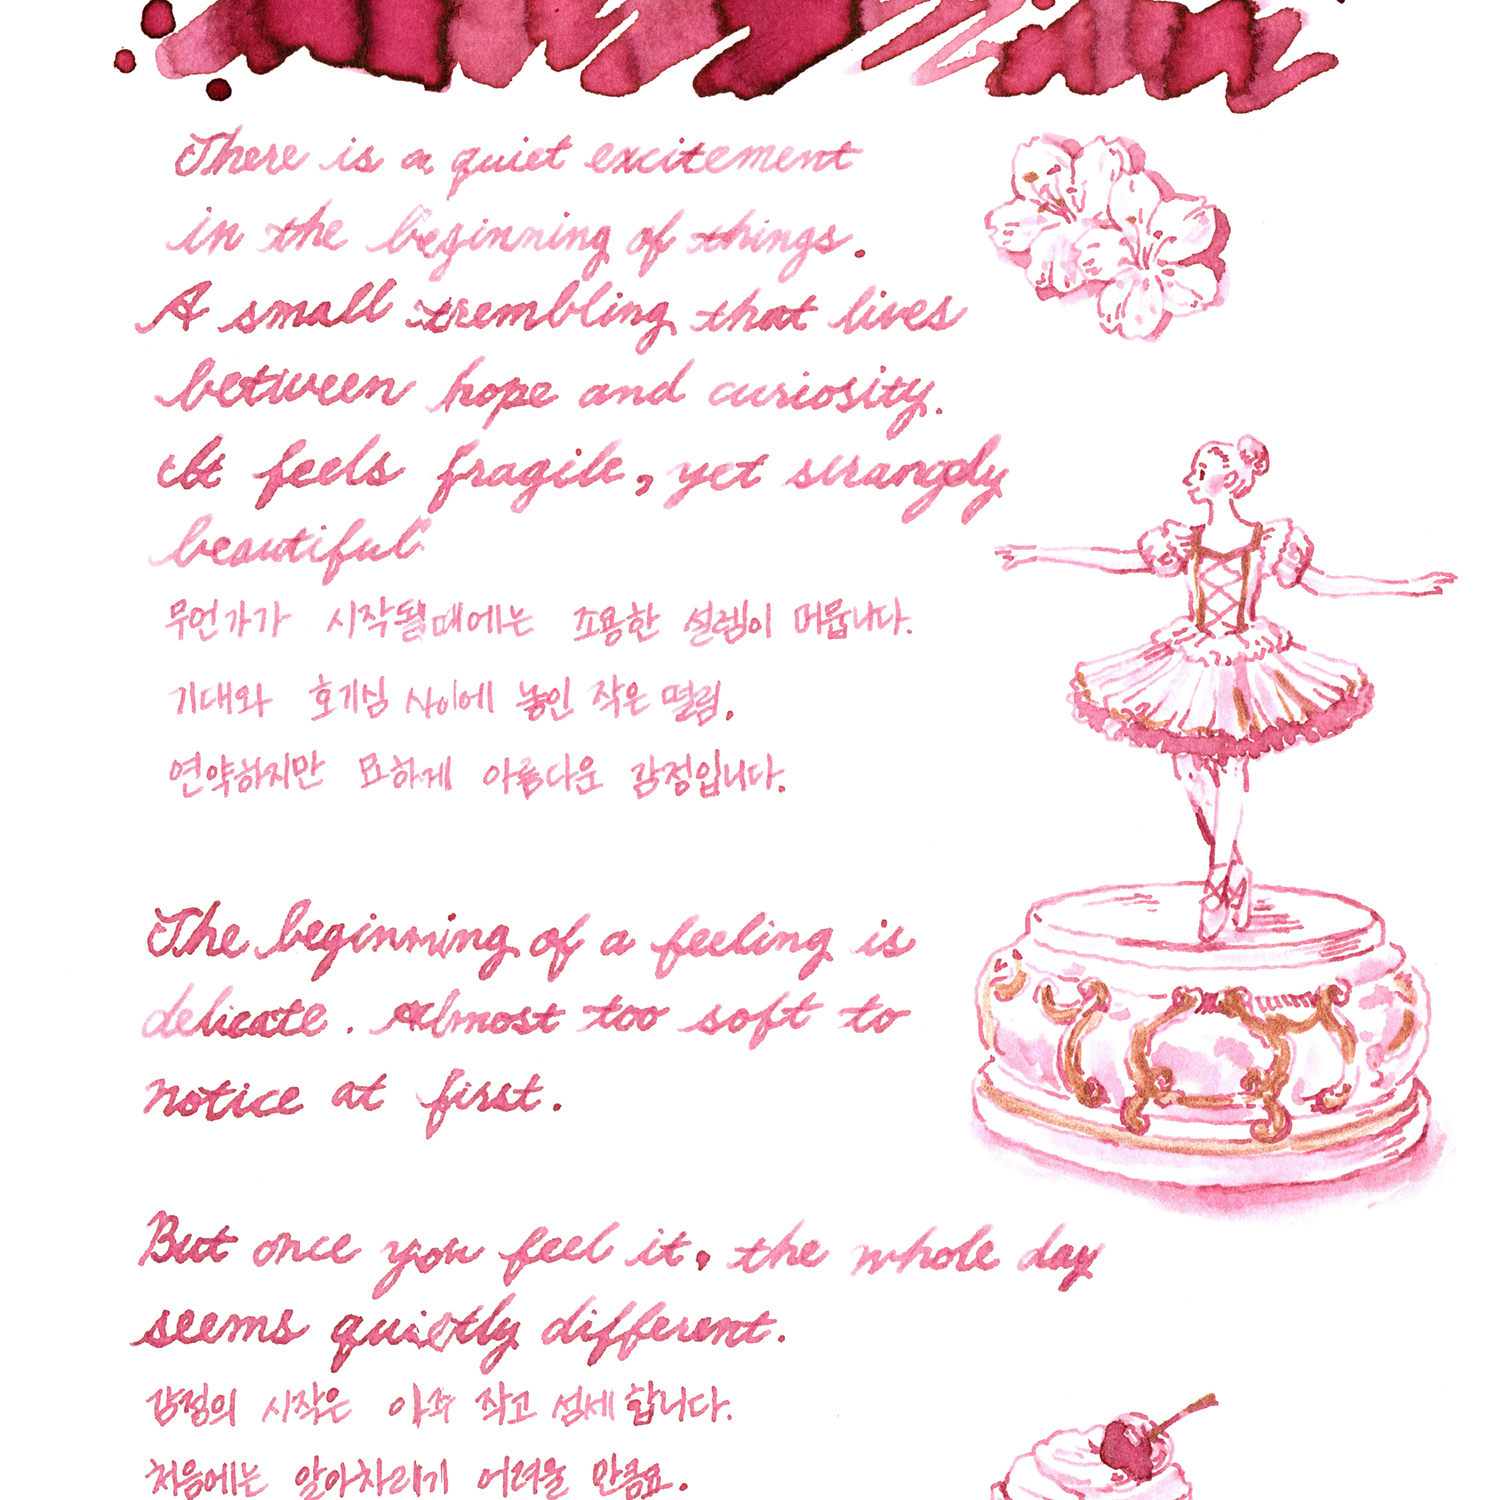 There is a quiet excitement
in the beginning of things.
A small trembling that lives
between hope and curiosity.
It feels fragile, yet strangely
beautiful
무언가가 시작될때에는 조용한 설렘이 머뭅니다.
기대와 호기심 사이에 놓인 작은 떨림.
연약하지만 묘하게 아름다운 감정입니다.
The beginning of a feeling is
delicate. Almost too soft to
notice at first.
But once you feel it, the whole day
seems quietly different.
감정의 시작은 아주 작고 섬세합니다.
처음에는 알아차리기 어려울 만큼요.